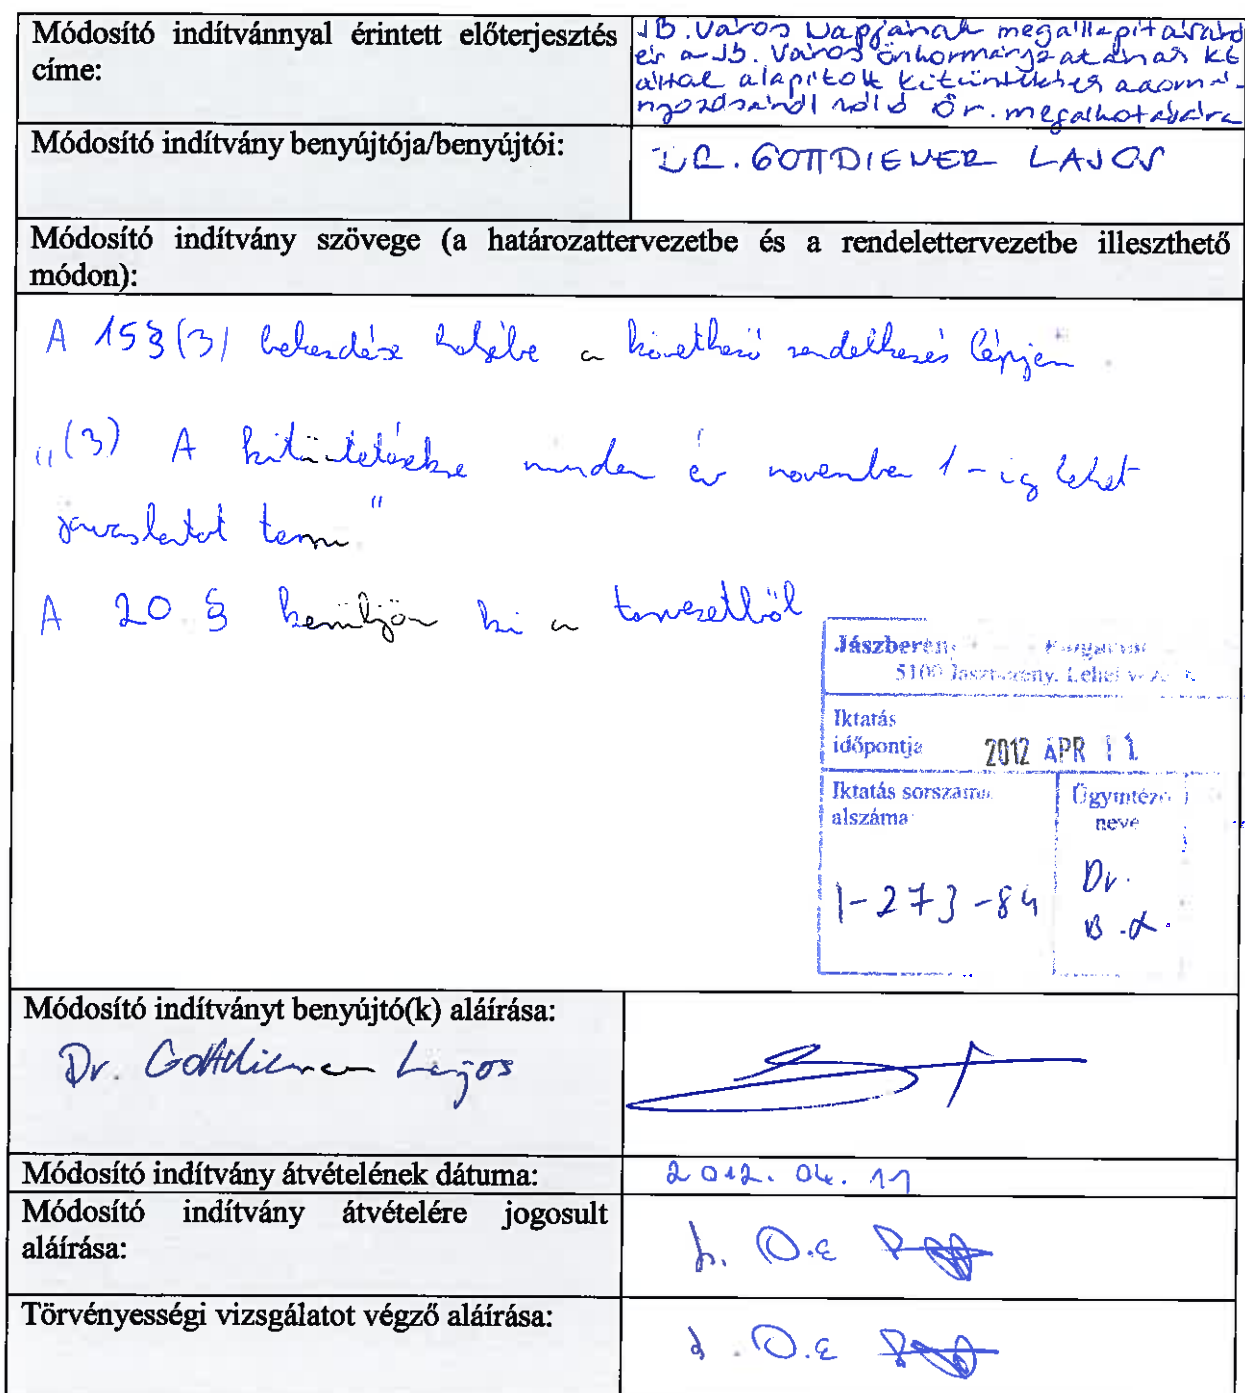 Módosító indítvánnyal érintett előterjesztés
címe:
JB. Város Napjának megállapításáról
és a Jb. Város Önkormányzatának Kt
által alapított kitüntetések adomá-
nyozásairól szóló Ör. megalkotására
Módosító indítvány benyújtója/benyújtói:
DR. GOTTDIENER LAJOS
Módosító indítvány szövege (a határozattervezetbe és a rendelettervezetbe illeszthető
módon):
A 15§ (3) bekezdése helyébe a következő rendelkezés lépjen
„(3) A kitüntetésekre minden év november 1-ig lehet
javaslatot tenni"
A 20 § kerüljön ki a tervezetből
Jászberény
5100 Jászberény, Lehel vezér
Iktatás
időpontja 2012 ÁPR 11
Iktatás sorszáma
alszáma
Ügyintéző
neve
1-273-84
Dr.
B.
Módosító indítványt benyújtó(k) aláírása:
Dr. Gottdiener Lajos
Módosító indítvány átvételének dátuma:
2012. 04. 11
Módosító indítvány átvételére jogosult
aláírása:
Törvényességi vizsgálatot végző aláírása: